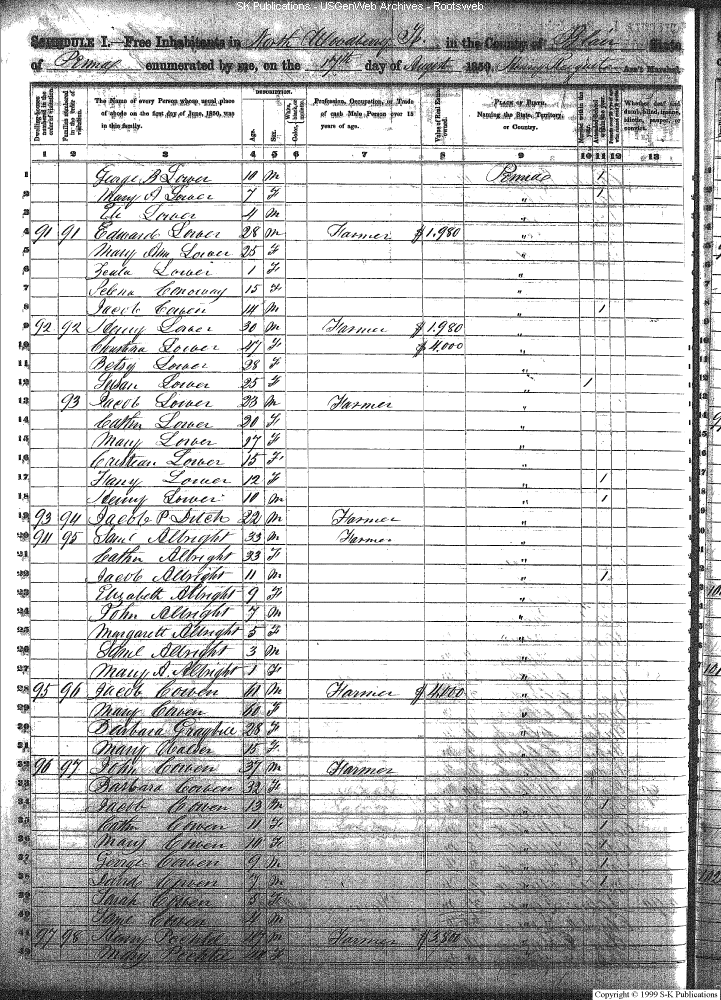 SK Publications - USGenWeb Archives - Rootsweb
SCHEDULE I.—Free Inhabitants in North Woodberry Tp. in the County of Blair State
of Pennae enumerated by me, on the 17th day of August 1850. Ass't Marshal.
DESCRIPTION.
Dwelling-houses numbered in the order of visitation.
Families numbered in the order of visitation.
The Name of every Person whose usual place of abode on the first day of June, 1850, was in this family.
Age.
Sex.
White, black, or mulatto.
Color,
Profession, Occupation, or Trade of each Male Person over 15 years of age.
Value of Real Estate owned.
PLACE OF BIRTH. Naming the State, Territory, or Country.
Married within the year.
Whether deaf and dumb, blind, insane, idiotic, pauper, or convict.
1 2 3 4 5 6 7 8 9 10 11 12 13
1 George B Lower 10 M Pennae 1
2 Mary A Lower 7 F " 1
3 Eli Lower 4 M "
4 91 91 Edward Lower 28 M Farmer $1,980 "
5 Mary Ann Lower 25 F "
6 Lower 1 F "
7 Conoway 15 F "
8 Jacob Cowen 14 M " 1
9 92 92 Henry Lower 30 M Farmer $1,980 "
10 Christiana Lower 47 F $4,000 "
11 Betsy Lower 28 F "
12 Susan Lower 25 F " 1
13 93 Jacob Lower 23 M Farmer "
14 Cathn Lower 20 F "
15 Mary Lower 17 F "
16 Cristean Lower 15 F "
17 Fany Lower 12 F " 1
18 Henry Lower 10 M " 1
19 93 94 Jacob P Ditch 22 M Farmer "
20 94 95 Saml Albright 33 M Farmer "
21 Cathn Albright 33 F "
22 Jacob Albright 11 M " 1
23 Elizabeth Albright 9 F "
24 John Albright 7 M "
25 Margarett Albright 5 F "
26 Saml Albright 3 M "
27 Mary A. Albright 1 F "
28 95 96 Jacob Cowen 61 M Farmer $4,000 "
29 Mary Cowen 60 F "
30 Barbara Graybill 28 F "
31 Mary 15 F "
32 96 97 John Cowen 37 M Farmer "
33 Barbara Cowen 32 F "
34 Jacob Cowen 13 M " 1
35 Cathn Cowen 11 F " 1
36 Mary Cowen 10 F " 1
37 George Cowen 9 M " 1
38 David Cowen 7 M " 1
39 Sarah Cowen 5 F "
40 Saml Cowen 4 M "
41 97 98 Henry 47 M Farmer $3,800 "
42 Mary F "
Copyright © 1999 S-K Publications